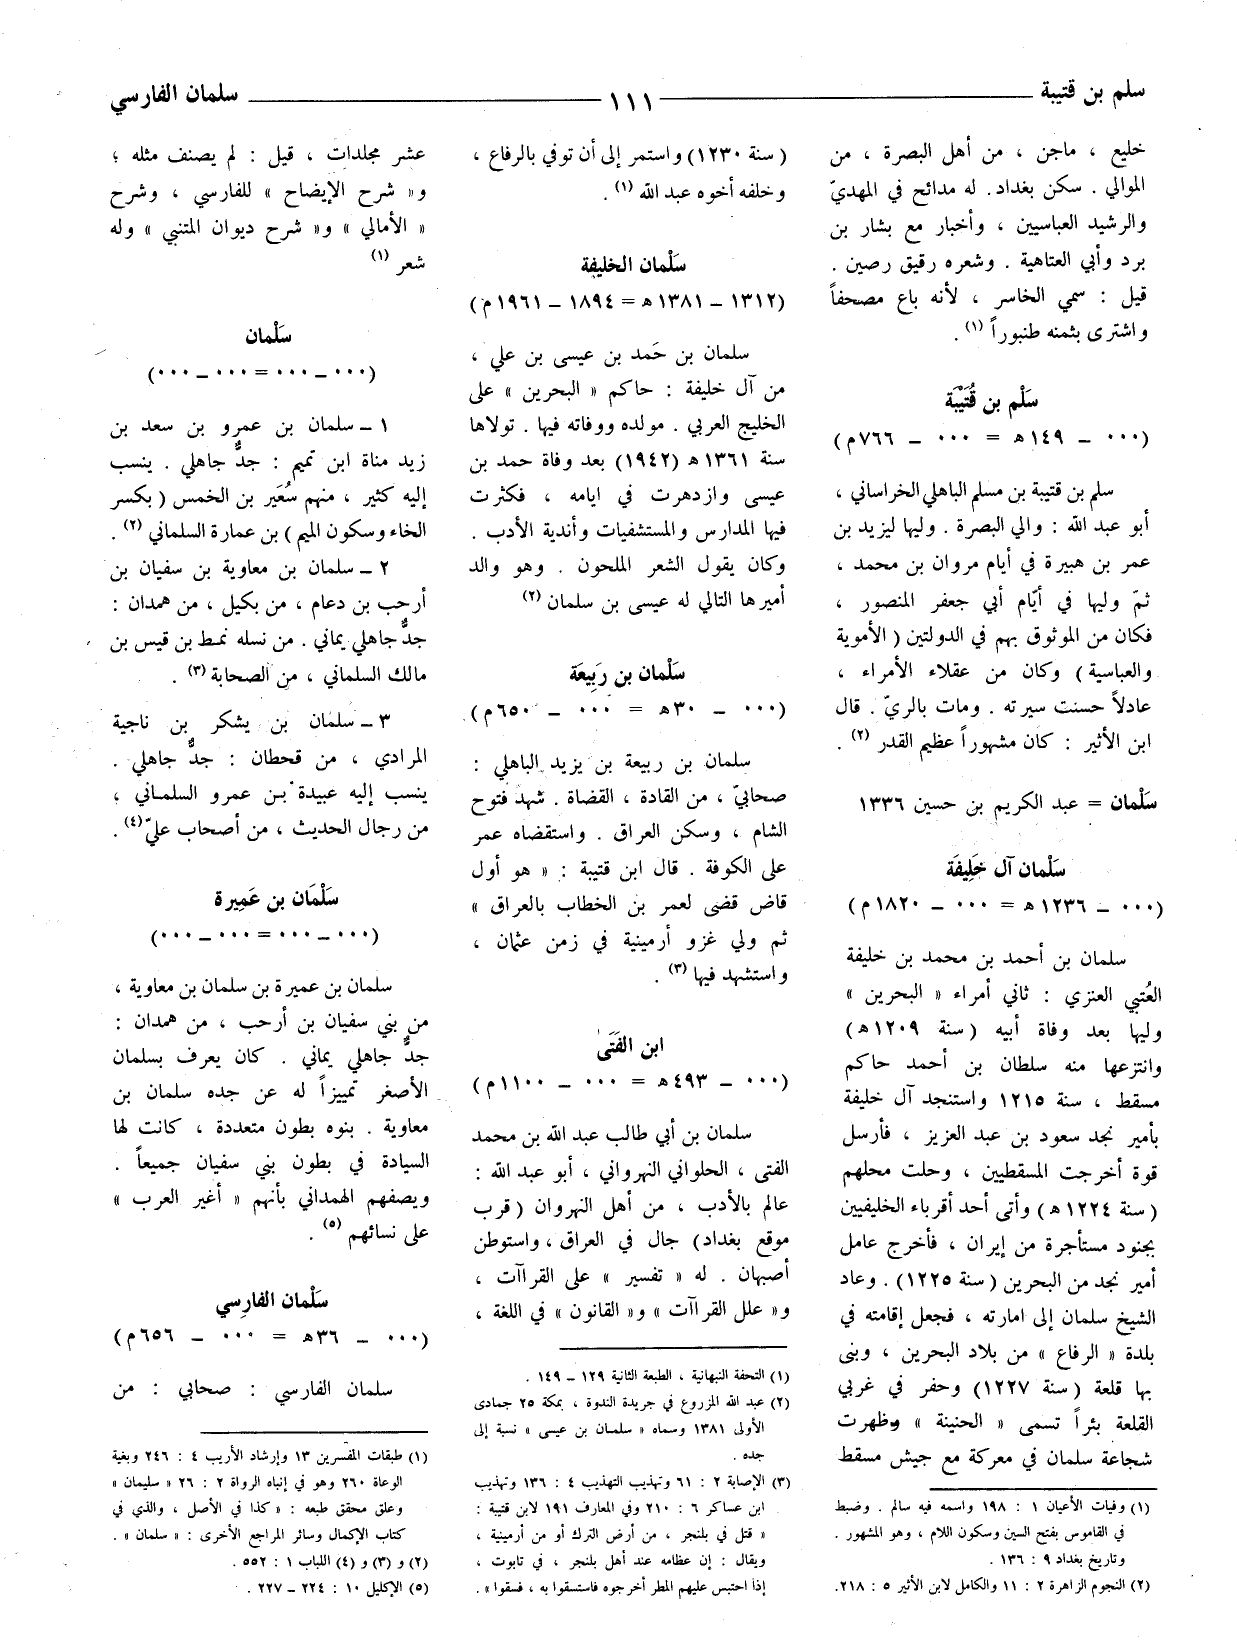 سلم بن قتيبة ـــ ١١١ ـــ سلمان الفارسي
خليع ، ماجن ، من أهل البصرة ، من
الموالي . سكن بغداد. له مدائح في المهديّ
والرشيد العباسيين ، وأخبار مع بشار بن
برد وأبي العتاهية . وشعره رقيق رصين .
قيل : سمي الخاسر ، لأنه باع مصحفاً
واشترى بثمنه طنبوراً (١).
سَلْم بن قُتَيْبَة
(٠٠٠ ـ ١٤٩ه = ٠٠٠ ـ ٧٦٦م)
سلم بن قتيبة بن مسلم الباهلي الخراساني ،
أبو عبد الله : والي البصرة . وليها ليزيد بن
عمر بن هبيرة في أيام مروان بن محمد ،
ثمّ وليها في أيّام أبي جعفر المنصور ،
فكان من الموثوق بهم في الدولتين ( الأموية
والعباسية ) وكان من عقلاء الأمراء ،
عادلاً حسنت سيرته . ومات بالريّ . قال
ابن الأثير : كان مشهوراً عظيم القدر (٢) .
سَلْمان = عبد الكريم بن حسين ١٣٣٦
سَلْمان آل خَلِيفَة
(٠٠٠ ـ ١٢٣٦ه = ٠٠٠ ـ ١٨٢٠م)
سلمان بن أحمد بن محمد بن خليفة
العُتبي العنزي : ثاني أمراء « البحرين »
وليها بعد وفاة أبيه (سنة ١٢٠٩ه)
وانتزعها منه سلطان بن أحمد حاكم
مسقط ، سنة ١٢١٥ واستنجد آل خليفة
بأمير نجد سعود بن عبد العزيز ، فأرسل
قوة أخرجت المسقطيين ، وحلت محلهم
(سنة ١٢٢٤ه) وأتى أحد أقرباء الخليفيين
بجنود مستأجرة من إيران ، فأخرج عامل
أمير نجد من البحرين (سنة ١٢٢٥) . وعاد
الشيخ سلمان إلى امارته ، فجعل إقامته في
بلدة « الرفاع » من بلاد البحرين ، وبنى
بها قلعة (سنة ١٢٢٧) وحفر في غربي
القلعة بئراً تسمى « الحنينة » وظهرت
شجاعة سلمان في معركة مع جيش مسقط
(١) وفيات الأعيان ١ : ١٩٨ واسمه فيه سالم . وضبط
في القاموس بفتح السين وسكون اللام ، وهو المشهور .
وتاريخ بغداد ٩ : ١٣٦ .
(٢) النجوم الزاهرة ٢ : ١١ والكامل لابن الأثير ٥ : ٢١٨.
(سنة ١٢٣٠) واستمر إلى أن توفي بالرفاع ،
وخلفه أخوه عبد الله (١) .
سَلْمان الخليفة
(١٣١٢ ـ ١٣٨١ه = ١٨٩٤ ـ ١٩٦١م)
سلمان بن حَمد بن عيسى بن علي ،
من آل خليفة : حاكم « البحرين » على
الخليج العربي . مولده ووفاته فيها . تولاها
سنة ١٣٦١ه (١٩٤٢) بعد وفاة حمد بن
عيسى وازدهرت في ايامه ، فكثرت
فيها المدارس والمستشفيات وأندية الأدب .
وكان يقول الشعر الملحون . وهو والد
أميرها التالي له عيسى بن سلمان (٢)
سَلْمان بن رَبِيعَة
(٠٠٠ ـ ٣٠ه = ٠٠٠ ـ ٦٥٠م)
سلمان بن ربيعة بن يزيد الباهلي :
صحابيّ ، من القادة ، القضاة . شهد فتوح
الشام ، وسكن العراق . واستقضاه عمر
على الكوفة . قال ابن قتيبة : « هو أول
قاض قضى لعمر بن الخطاب بالعراق »
ثم ولي غزو أرمينية في زمن عثمان ،
واستشهد فيها (٣) .
ابن الفَتَى
(٠٠٠ ـ ٤٩٣ه = ٠٠٠ ـ ١١٠٠م)
سلمان بن أبي طالب عبد الله بن محمد
الفتى ، الحلواني النهرواني ، أبو عبد الله :
عالم بالأدب ، من أهل النهروان (قرب
موقع بغداد) جال في العراق ، واستوطن
أصبهان . له « تفسير » على القراآت ،
و« علل القراآت » و« القانون » في اللغة ،
(١) التحفة النبهانية ، الطبعة الثانية ١٢٩ ـ ١٤٩ .
(٢) عبد الله المزروع في جريدة الندوة ، بمكة ٢٥ جمادى
الأولى ١٣٨١ وسماه « سلمان بن عيسى » نسبة إلى
جده .
(٣) الإصابة ٢ : ٦١ وتهذيب التهذيب ٤ : ١٣٦ وتهذيب
ابن عساكر ٦ : ٢١٠ وفي المعارف ١٩١ لابن قتيبة :
« قتل في بلنجر ، من أرض الترك أو من أرمينية ،
ويقال : إن عظامه عند أهل بلنجر ، في تابوت ،
إذا احتبس عليهم المطر أخرجوه فاستسقوا به ، فسقوا » .
عشر مجلدات ، قيل : لم يصنف مثله ؛
و« شرح الإيضاح » للفارسي ، وشرح
« الأمالي » و« شرح ديوان المتنبي » وله
شعر (١)
سَلْمان
(٠٠٠ ـ ٠٠٠ = ٠٠٠ ـ ٠٠٠)
١ ـ سلمان بن عمرو بن سعد بن
زيد مناة ابن تميم : جدٌّ جاهلي . ينسب
إليه كثير ، منهم سُعَير بن الخمس ( بكسر
الخاء وسكون الميم ) بن عمارة السلماني (٢) .
٢ ـ سلمان بن معاوية بن سفيان بن
أرحب بن دعام ، من بكيل ، من همدان :
جدٌّ جاهلي يماني . من نسله نمط بن قيس بن
مالك السلماني ، من الصحابة (٣) .
٣ ـ سلمان بن يشكر بن ناجية
المرادي ، من قحطان : جدٌّ جاهلي .
ينسب إليه عبيدة بن عمرو السلماني ،
من رجال الحديث ، من أصحاب عليّ (٤) .
سَلْمَان بن عَمِيرة
(٠٠٠ ـ ٠٠٠ = ٠٠٠ ـ ٠٠٠)
سلمان بن عميرة بن سلمان بن معاوية ،
من بني سفيان بن أرحب ، من همدان :
جدٌّ جاهلي يماني . كان يعرف بسلمان
الأصغر تمييزاً له عن جده سلمان بن
معاوية . بنوه بطون متعددة ، كانت لها
السيادة في بطون بني سفيان جميعاً .
ويصفهم الهمداني بأنهم « أغير العرب »
على نسائهم (٥) .
سَلْمان الفارِسي
(٠٠٠ ـ ٣٦ه = ٠٠٠ ـ ٦٥٦م)
سلمان الفارسي : صحابي : من
(١) طبقات المفسرين ١٣ وإرشاد الأريب ٤ : ٢٤٦ وبغية
الوعاة ٢٦٠ وهو في إنباه الرواة ٢ : ٢٦ « سليمان »
وعلق محقق طبعه : « كذا في الأصل ، والذي في
كتاب الإكمال وسائر المراجع الأخرى : « سلمان » .
(٢) و (٣) و (٤) اللباب ١ : ٥٥٢ .
(٥) الإكليل ١٠ : ٢٢٤ ـ ٢٢٧ .